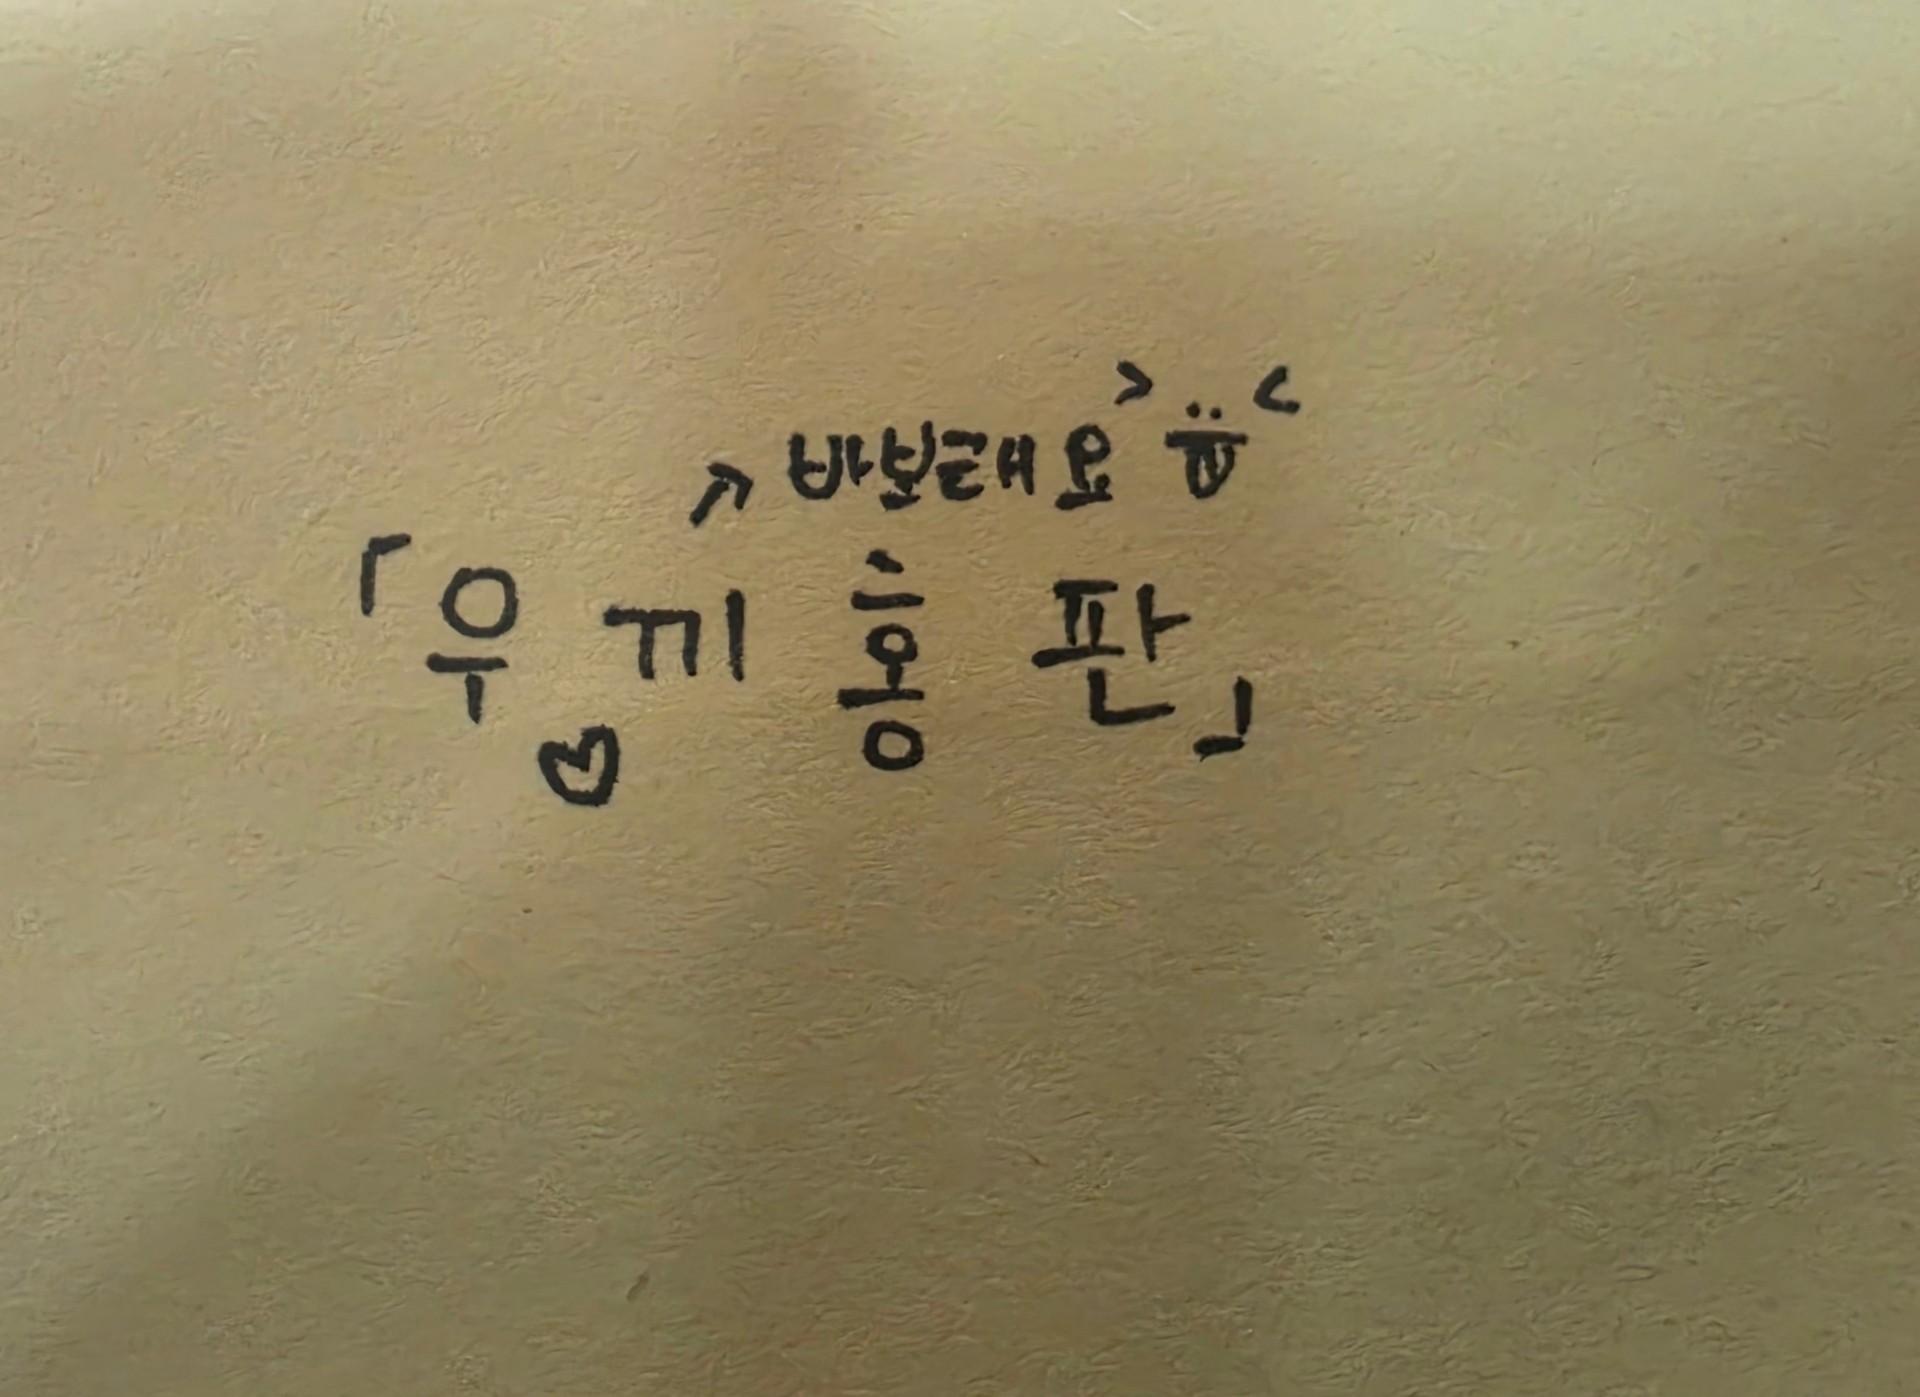 바보래요
「우끼홍판」